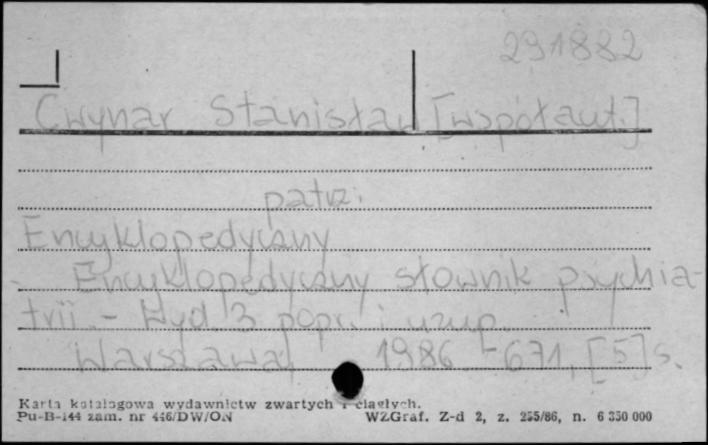 291882
Cwynar Stanisław [współaut.]
patrz:
Encyklopedyczny
Encyklopedyczny słownik psychia-
trii. - Wyd. 3 popr. i uzup.
Warszawa, 1986. - 671, [5] s.
Karta katalogowa wydawnictw zwartych i ciągłych.
Pu-B-144 zam. nr 446/DW/ON WZGraf. Z-d 2, z. 255/86, n. 6 350 000